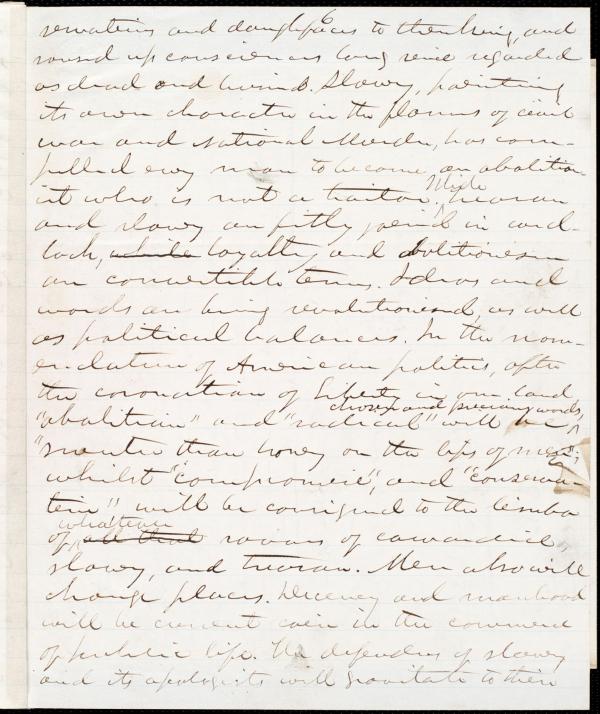 servatives and doughfaces to thinking, and
roused up consciences long since regarded
as dead and buried. Slavery, painting
its own character in the flames of civil
war and National Murder, has com-
pelled every man to become an abolition
ist who is not a traitor. While treason
and slavery are fitly joined in wed-
lock, while loyalty and abolitionism
are convertible terms. Ideas and
words are being revolutionized, as well
as political balances. In the nom-
enclature of American politics, after
the coronation of Liberty in our land
"abolition" and "radical" will be
chosen and precious words,
"sweeter than honey on the lips of men";
whilst "compromise", and "conserva-
tism" will be consigned to the limbo
of all that whatever savors of cowardice,
slavery, and treason. Men also will
change places. Decency and manhood
will be current coin in the commerce
of public life. The defenders of slavery
and its apologists will gravitate to their